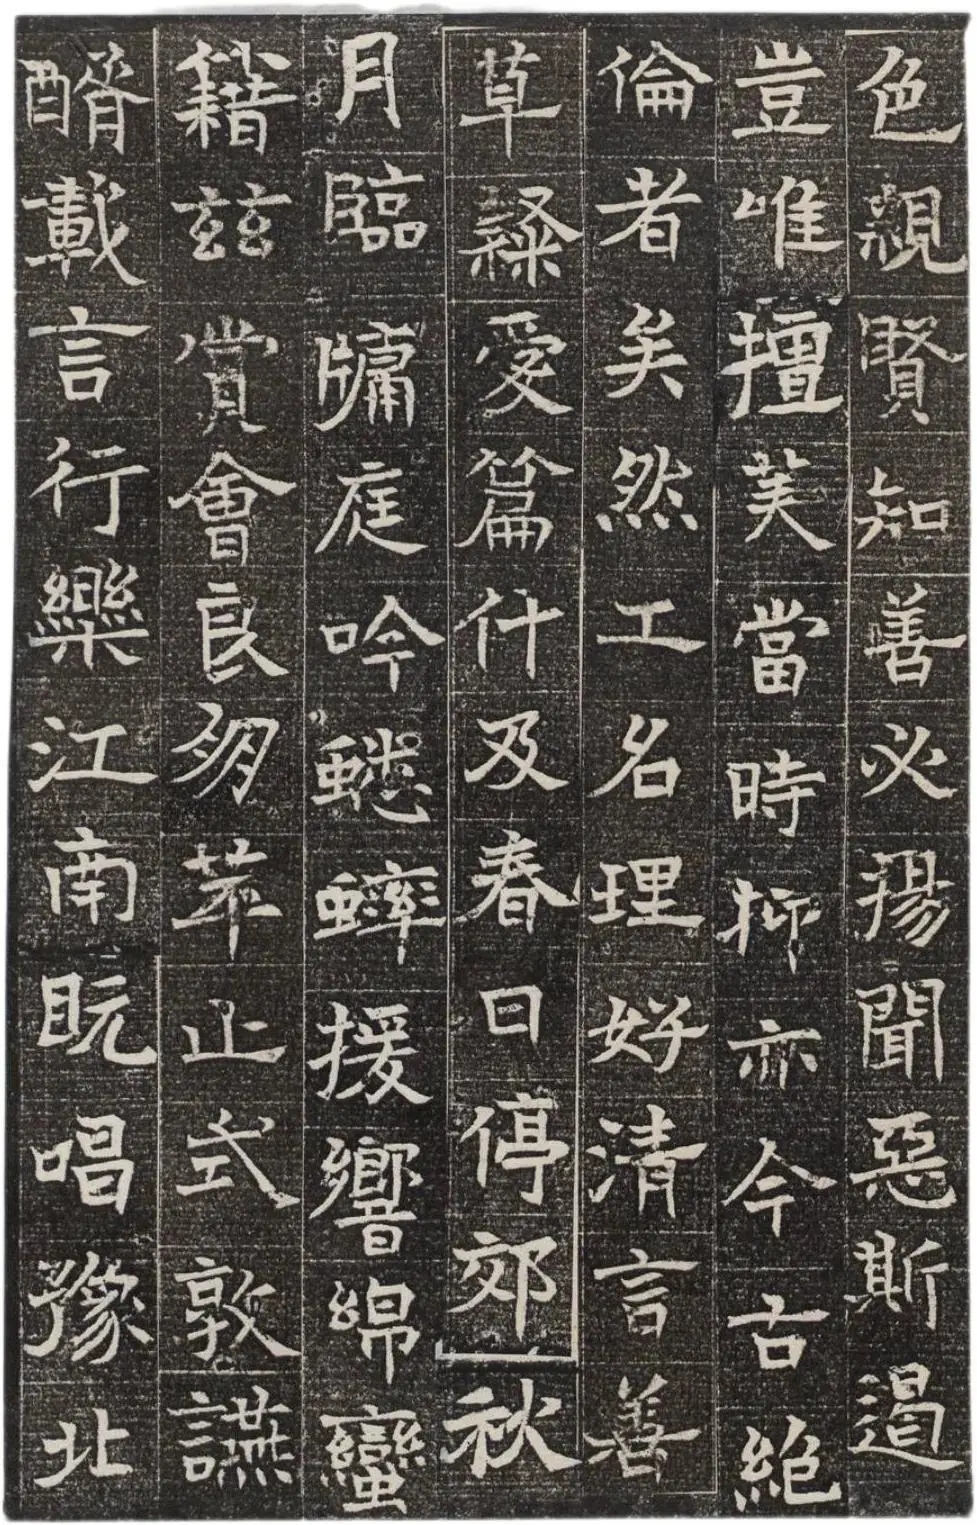 色親賢知善必揚聞惡斯遏
豈唯擅美當時抑亦今古絶
倫者矣然工名理好清言善
草隸愛篇什及春日停郊秋
月臨牖庭吟蟋蟀援響綿蠻
籍兹賞會良朋萃止式敦讌
醑載言行樂江南既唱豫北